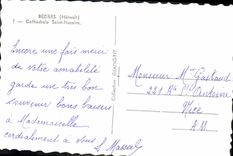 BÉZIERS (Hérault)
7 - Cathédrale Saint-Nazaire.
Encore une fois merci
de votre amabilité
garde un très bon
souvenir bons baisers
à Mademoiselle
cordialement à vous
S. Marcel
Collection
Monsieur Mme
221 Rte St Antoine
Nice
A.M.